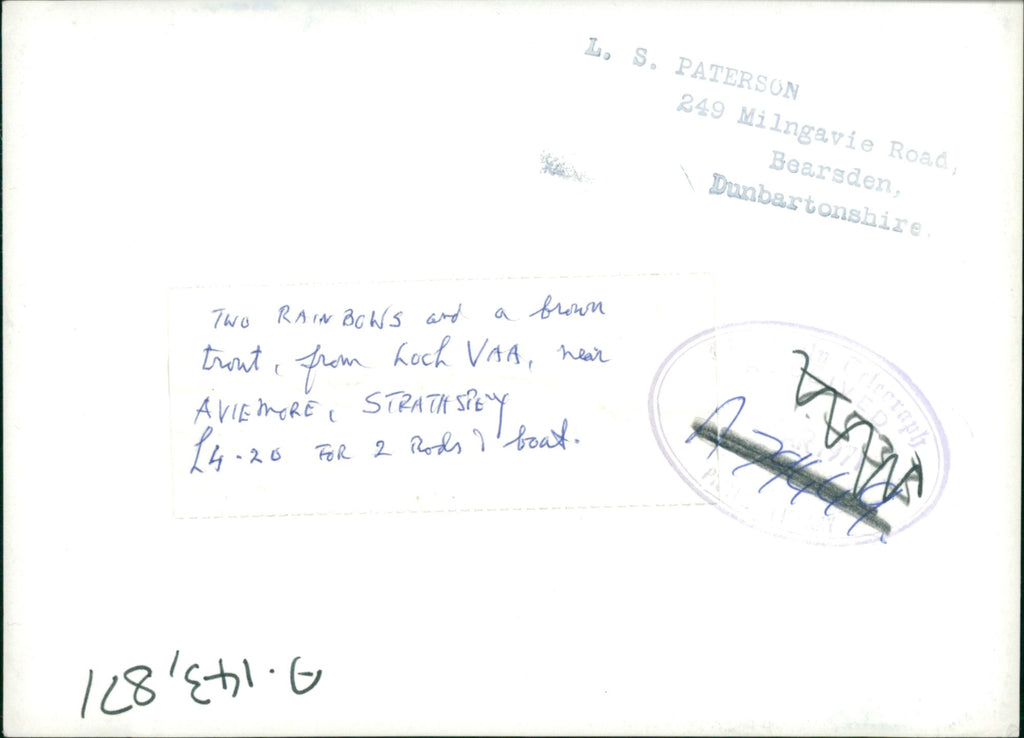 L. S. PATERSON
249 Milngavie Road,
Bearsden,
Dunbartonshire.
TWO RAINBOWS and a brown
trout, from Loch VAA, near
AVIEMORE, STRATHSPEY
£4.20 FOR 2 Rods & boat.
Telegraph
A.143,871